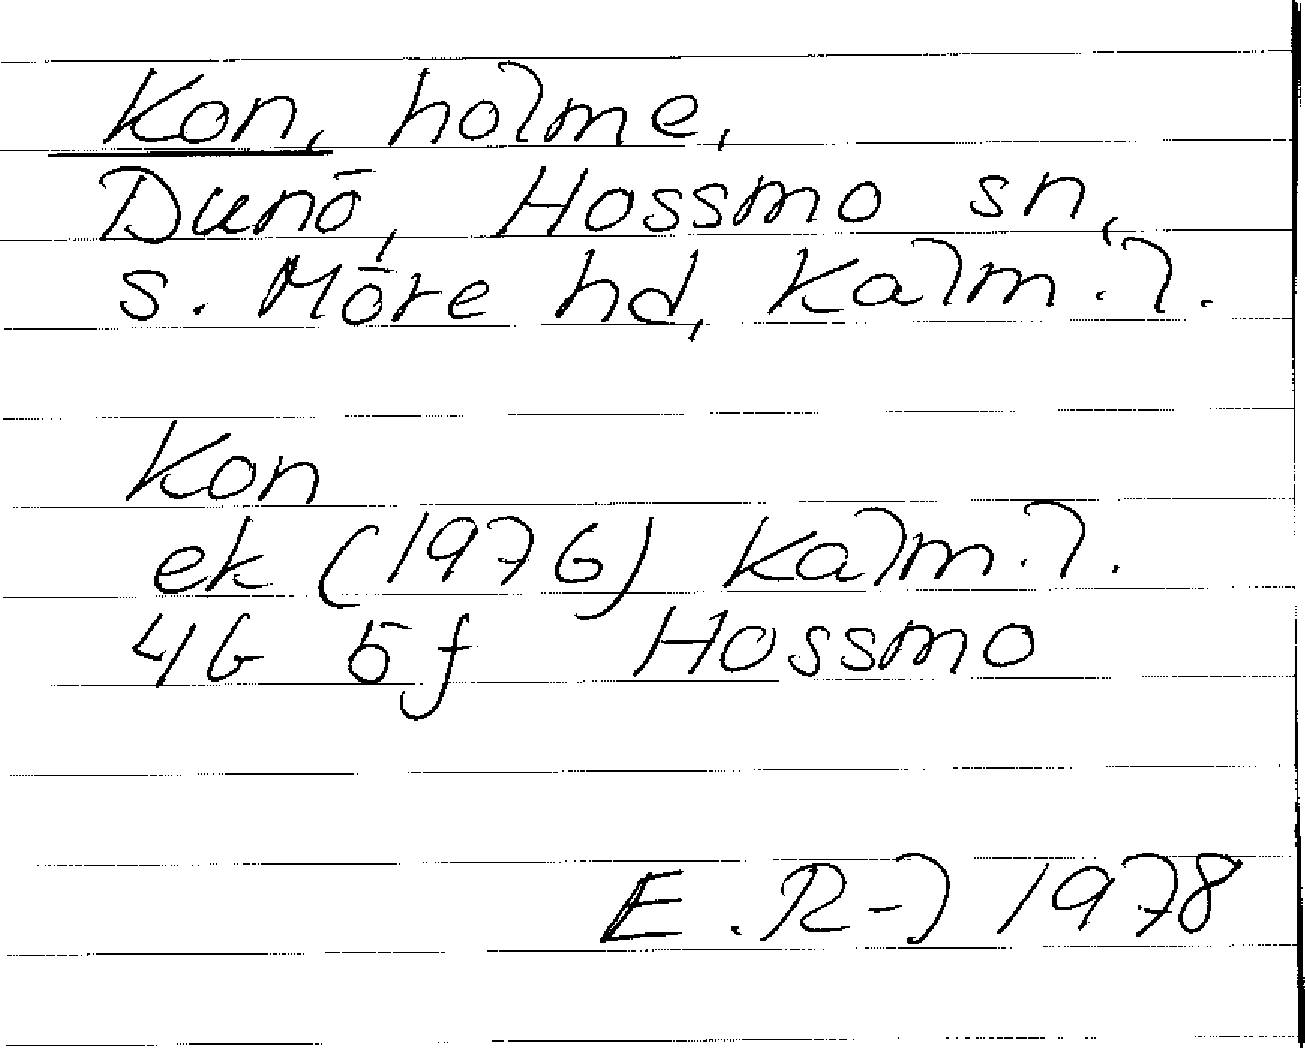 Kon, holme,
Dunö, Hossmo sn,
s. Möre hd, Kalm. l.
Kon
ek (1976) Kalm. l.
4G 5f Hossmo
E. R-l 1978